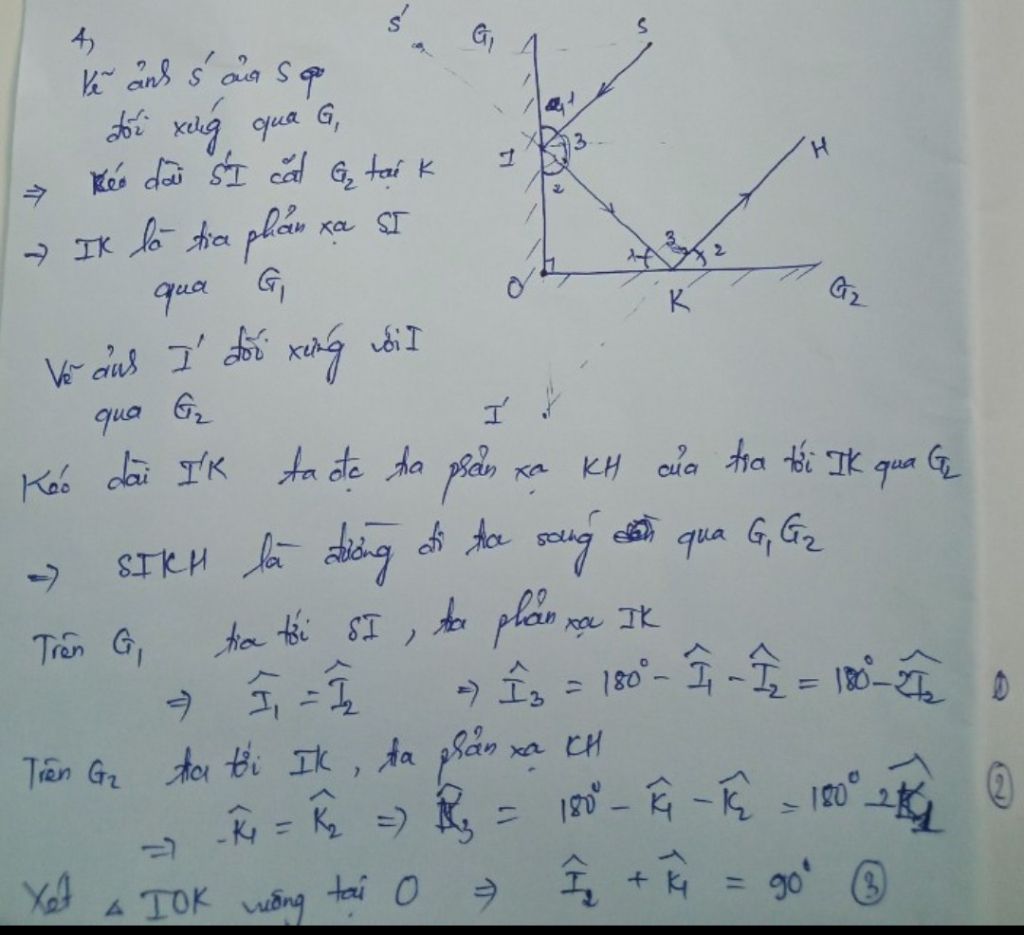 4,
Vẽ ảnh S' của S
đối xứng qua G₁
⇒ Kéo dài S'I cắt G₂ tại K
→ IK là tia phản xạ SI
qua G₁
Vẽ ảnh I' đối xứng với I
qua G₂
S'
G₁
S
1
I
3
2
H
1
3
2
O
K
G₂
I'
Kéo dài I'K ta đc tia phản xạ KH của tia tới IK qua G₂
⇒ SIKH là đường đi tia sáng qua G₁ G₂
Trên G₁ tia tới SI, tia phản xạ IK
⇒ Î₁ = Î₂ ⇒ Î₃ = 180° - Î₁ - Î₂ = 180° - 2Î₂ ①
Trên G₂ tia tới IK, tia phản xạ KH
⇒ K̂₁ = K̂₂ ⇒ K̂₃ = 180° - K̂₁ - K̂₂ = 180° - 2K̂₁ ②
Xét △ IOK vuông tại O ⇒ Î₂ + K̂₁ = 90° ③